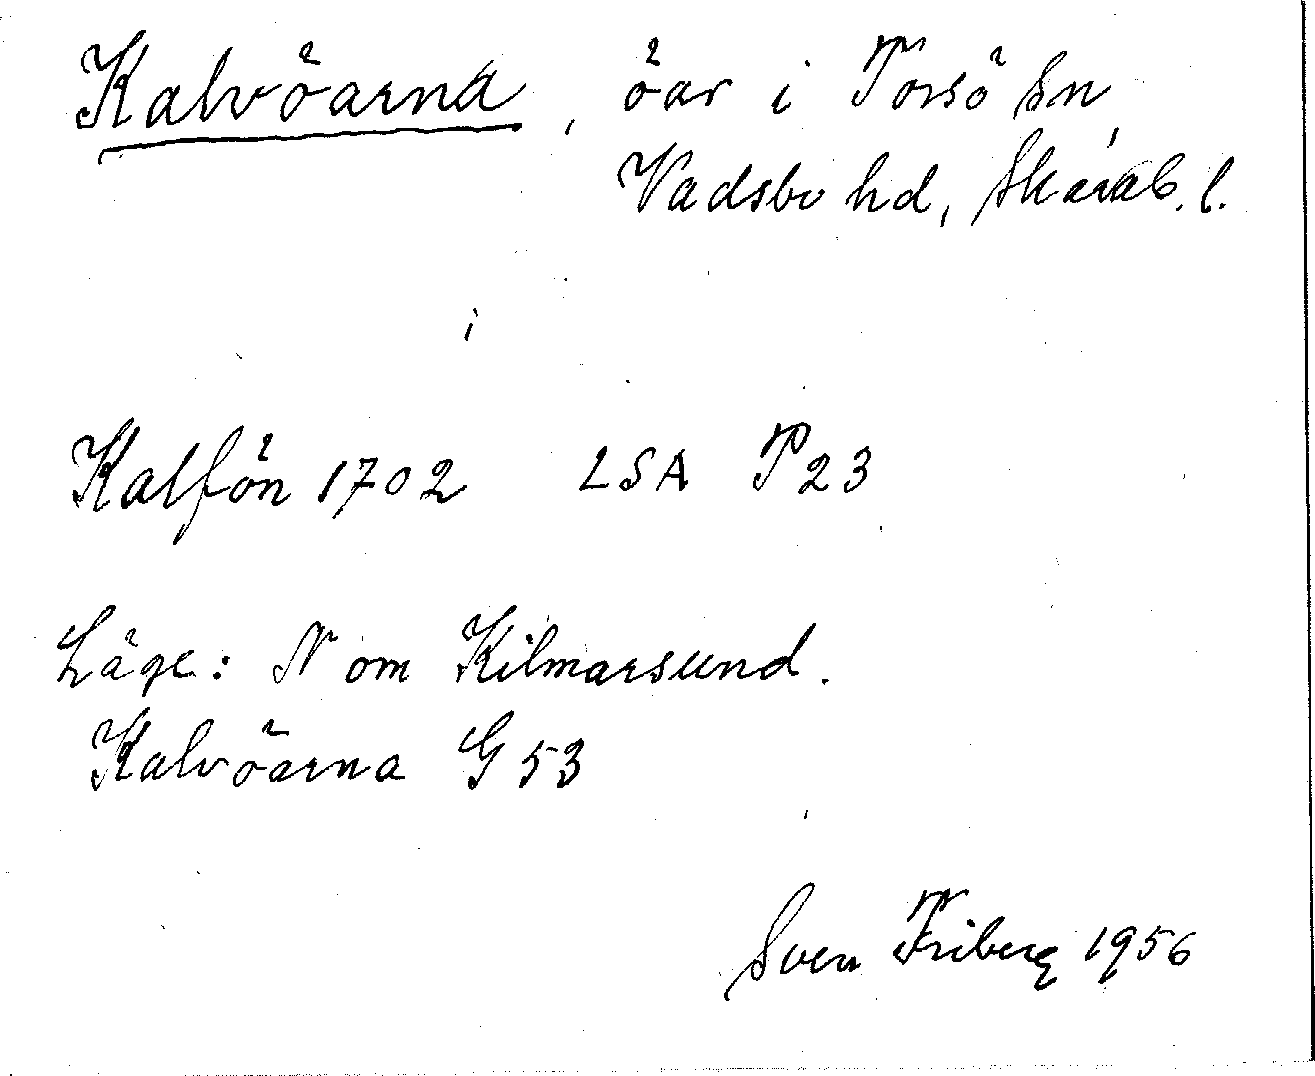 Kalvöarna, öar i Torsö sn,
Vadsbo hd, Skarab. l.
Kalfön 1702 LSA P23
Läge: N om Kilmarsund.
Kalvöarna G 53
Sven Friberg 1956